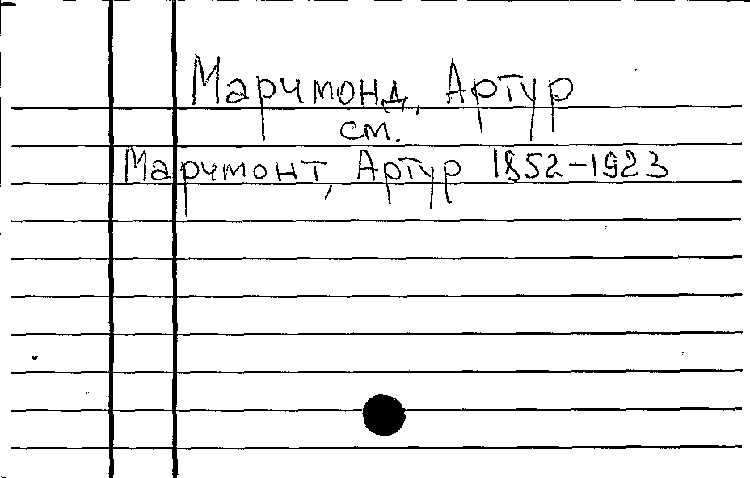 Марчмонд, Артур
см.
Марчмонт, Артур 1852-1923